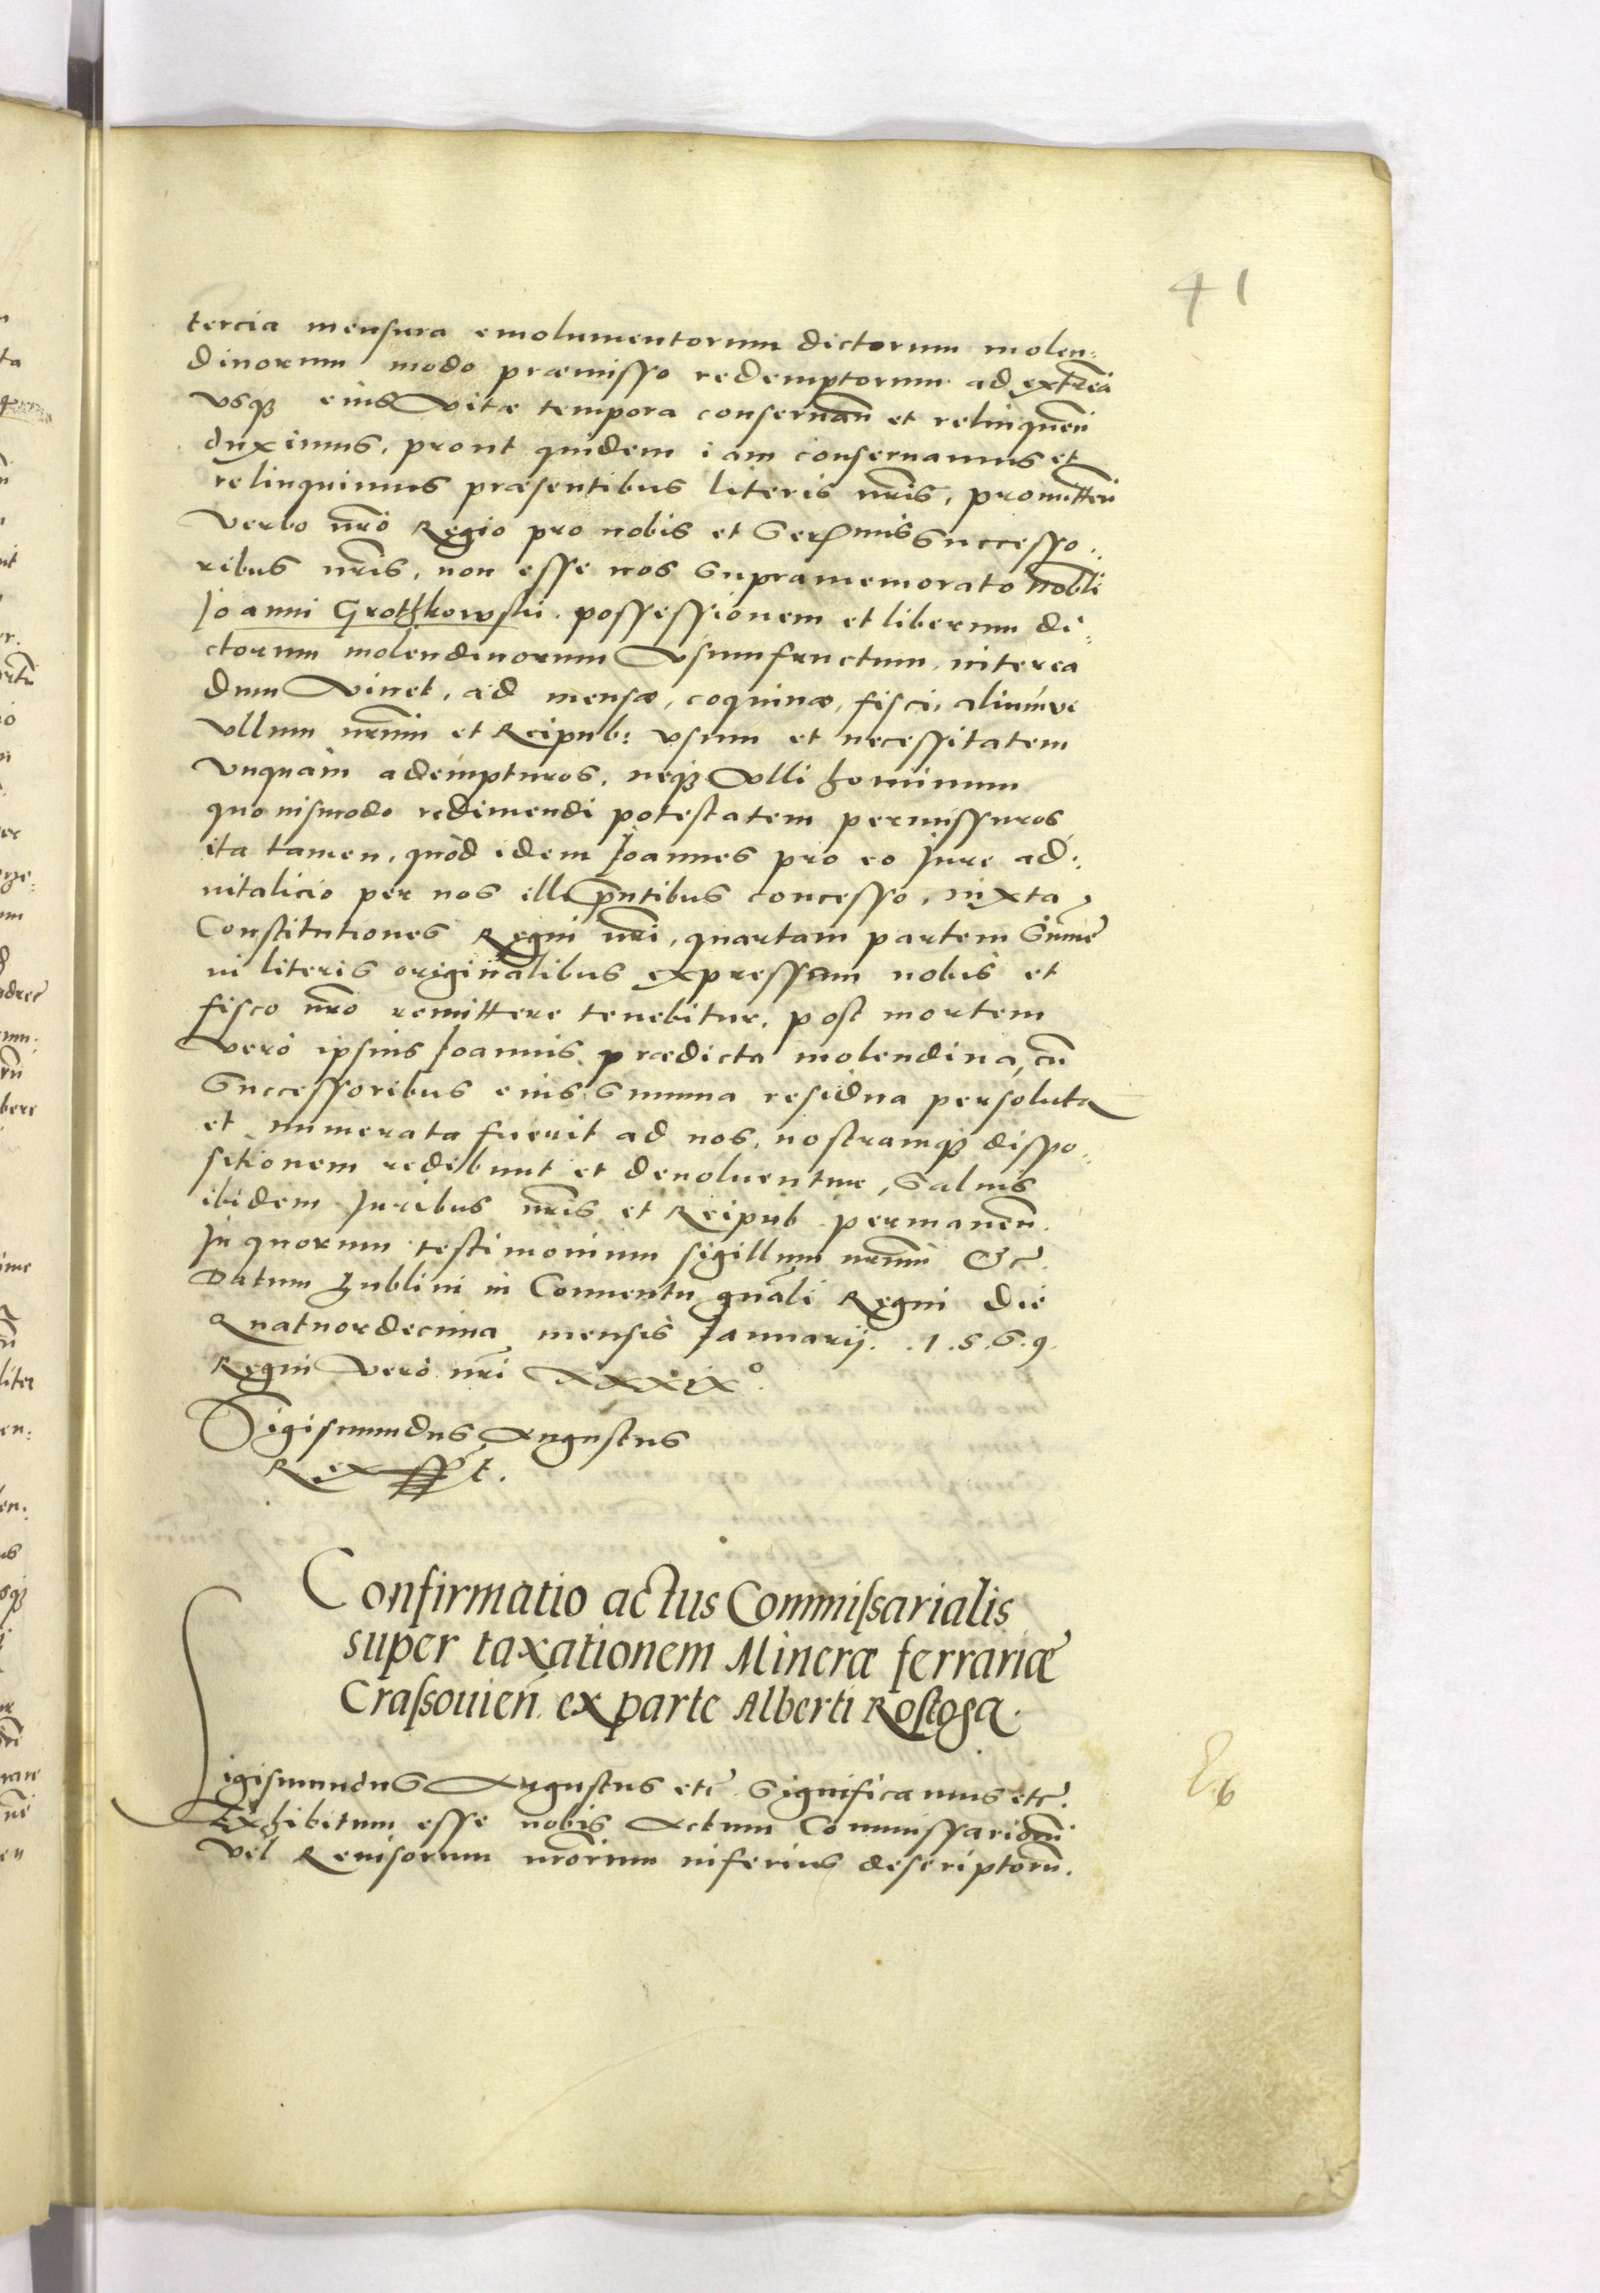 41
tercia mensura emolumentorum dictorum molen:
dinorum modo præmisso redemptorum ad extrea
vsq; eius vitæ tempora conseruan̄ et relinquen̄
duximus, prout quidem iam conseruamus et
relinquimus præsentibus literis nr̄is, promitten̄
verbo nr̄o Regio pro nobis et Ser̄mis Successo:
ribus nr̄is, non esse nos supramemorato nobli
Joanni Grothkowski possessionem et liberum di:
ctorum molendinorum vsumfructum, interea
dum viuet, ad mensæ, coquinæ, fisci, aliumve
vllum nr̄um et Reipub: vsum et necessitatem
vnquam adempturos, neq; vlli hominum
quouismodo redimendi potestatem permissuros
ita tamen, quod idem Joannes pro eo Jure ad:
uitalicio per nos illi pn̄tibus concesso, iuxta
Constitutiones Regni nr̄i, quartam partem Sum̄e
in literis originalibus expressam nobis et
fisco nr̄o remittere tenebitur, post mortem
vero ipsius Joannis prædicta molendina, cū
Successoribus eius Summa residua persoluta
et numerata fuerit ad nos, nostramq; dispo:
sitionem redibunt et deuoluentur, Saluis
ibidem Juribus nr̄is et Reipub permanen̄.
In quorum testimonium sigillum nr̄um &c̄.
Datum Lublini in Conuentu gnāli Regni die
Quatuordecima mensis Januarij. .1.5.6.9.
Regni vero nr̄i XXXIXº.
Sigismundus Augustus
Rex sst.
Confirmatio actus Commissarialis
super taxationem Mineræ ferrariæ
Crassouien̄. ex parte Alberti Rostoga.
Sigismundus Augustus etc̄ Significamus etc̄.
Exhibitum esse nobis Actum Commissariorum
vel Reuisorum nr̄orum inferius descriptorū.